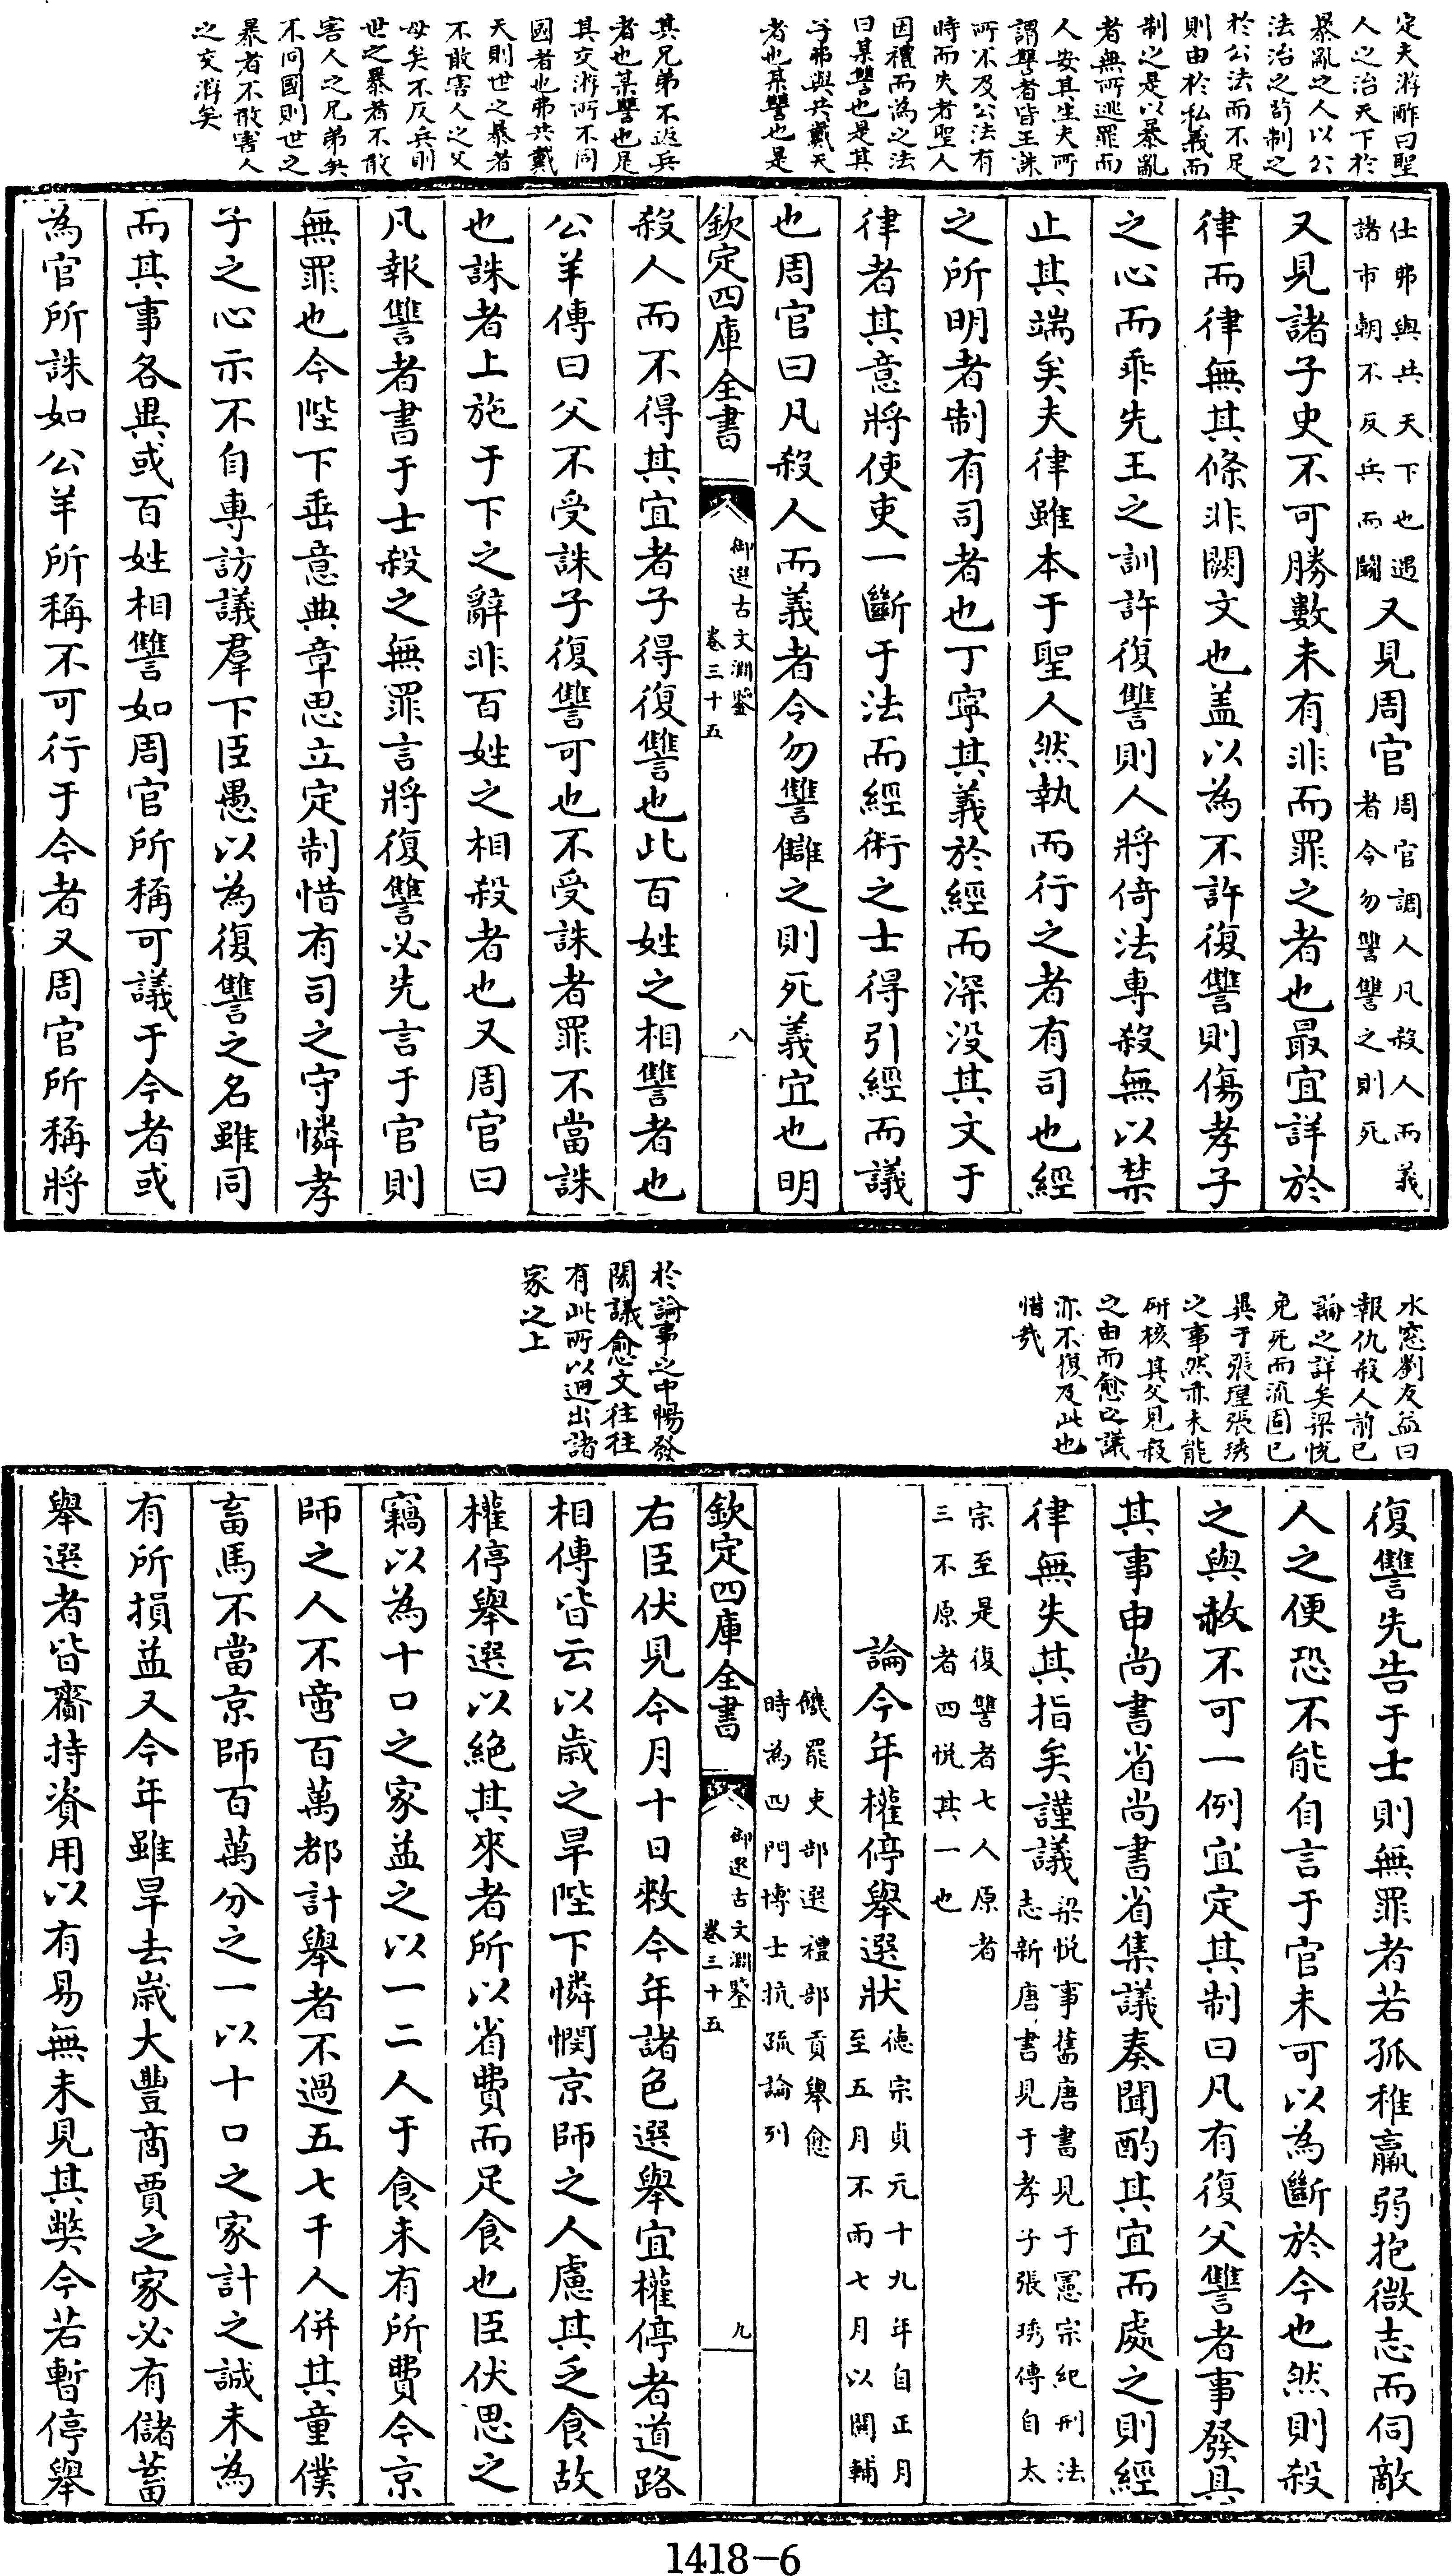 定夫游酢曰聖
人之治天下於
暴亂之人以公
法治之苟制之
於公法而不足
則由於私義而
制之是以暴亂
者無所逃罪而
人安其生夫所
謂讐者皆王誅
所不及公法有
時而失者聖人
因禮而為之法
曰某讐也是其
子弗與共戴天
者也某讐也是
其兄弟不返兵
者也某讐也是
其交游所不同
國者也弗共戴
天則世之暴者
不敢害人之父
母矣不反兵則
世之暴者不敢
害人之兄弟矣
不同國則世之
暴者不敢害人
之交游矣
仕弗與共天下也遇
諸市朝不反兵而鬭又見周官周官調人凡殺人而義
者令勿讐讐之則死
又見諸子史不可勝數未有非而罪之者也最宜詳於
律而律無其條非闕文也盖以為不許復讐則傷孝子
之心而乖先王之訓許復讐則人將倚法專殺無以禁
止其端矣夫律雖本于聖人然執而行之者有司也經
之所明者制有司者也丁寧其義於經而深沒其文于
律者其意將使吏一斷于法而經術之士得引經而議
也周官曰凡殺人而義者令勿讐讎之則死義宜也明
欽定四庫全書
御選古文淵鑒
卷三十五
八
殺人而不得其宜者子得復讐也此百姓之相讐者也
公羊傳曰父不受誅子復讐可也不受誅者罪不當誅
也誅者上施于下之辭非百姓之相殺者也又周官曰
凡報讐者書于士殺之無罪言將復讐必先言于官則
無罪也今陛下垂意典章思立定制惜有司之守憐孝
子之心示不自專訪議羣下臣愚以為復讐之名雖同
而其事各異或百姓相讐如周官所稱可議于今者或
為官所誅如公羊所稱不可行于今者又周官所稱將
水窓劉友益曰
報仇殺人前已
論之詳矣梁悅
免死而流固已
異于張瑝張琇
之事然亦未能
研核其父見殺
之由而愈之議
亦不復及此也
惜哉
於論事之中暢發
閎議愈文往往
有此所以迥出諸
家之上
復讐先告于士則無罪者若孤稚羸弱抱微志而伺敵
人之便恐不能自言于官未可以為斷於今也然則殺
之與赦不可一例宜定其制曰凡有復父讐者事發具
其事申尚書省尚書省集議奏聞酌其宜而處之則經
律無失其指矣謹議梁悅事舊唐書見于憲宗紀刑法
志新唐書見于孝子張琇傳自太
宗至是復讐者七人原者
三不原者四悅其一也
論今年權停舉選狀德宗貞元十九年自正月
至五月不雨七月以關輔
饑罷吏部選禮部貢舉愈
時為四門博士抗疏論列
欽定四庫全書
御選古文淵鑒
卷三十五
九
右臣伏見今月十日敕今年諸色選舉宜權停者道路
相傳皆云以歲之旱陛下憐憫京師之人慮其乏食故
權停舉選以絕其來者所以省費而足食也臣伏思之
竊以為十口之家益之以一二人于食未有所費今京
師之人不啻百萬都計舉者不過五七千人併其童僕
畜馬不當京師百萬分之一以十口之家計之誠未為
有所損益又今年雖旱去歲大豐商賈之家必有儲蓄
舉選者皆齎持資用以有易無未見其弊今若暫停舉
1418-6